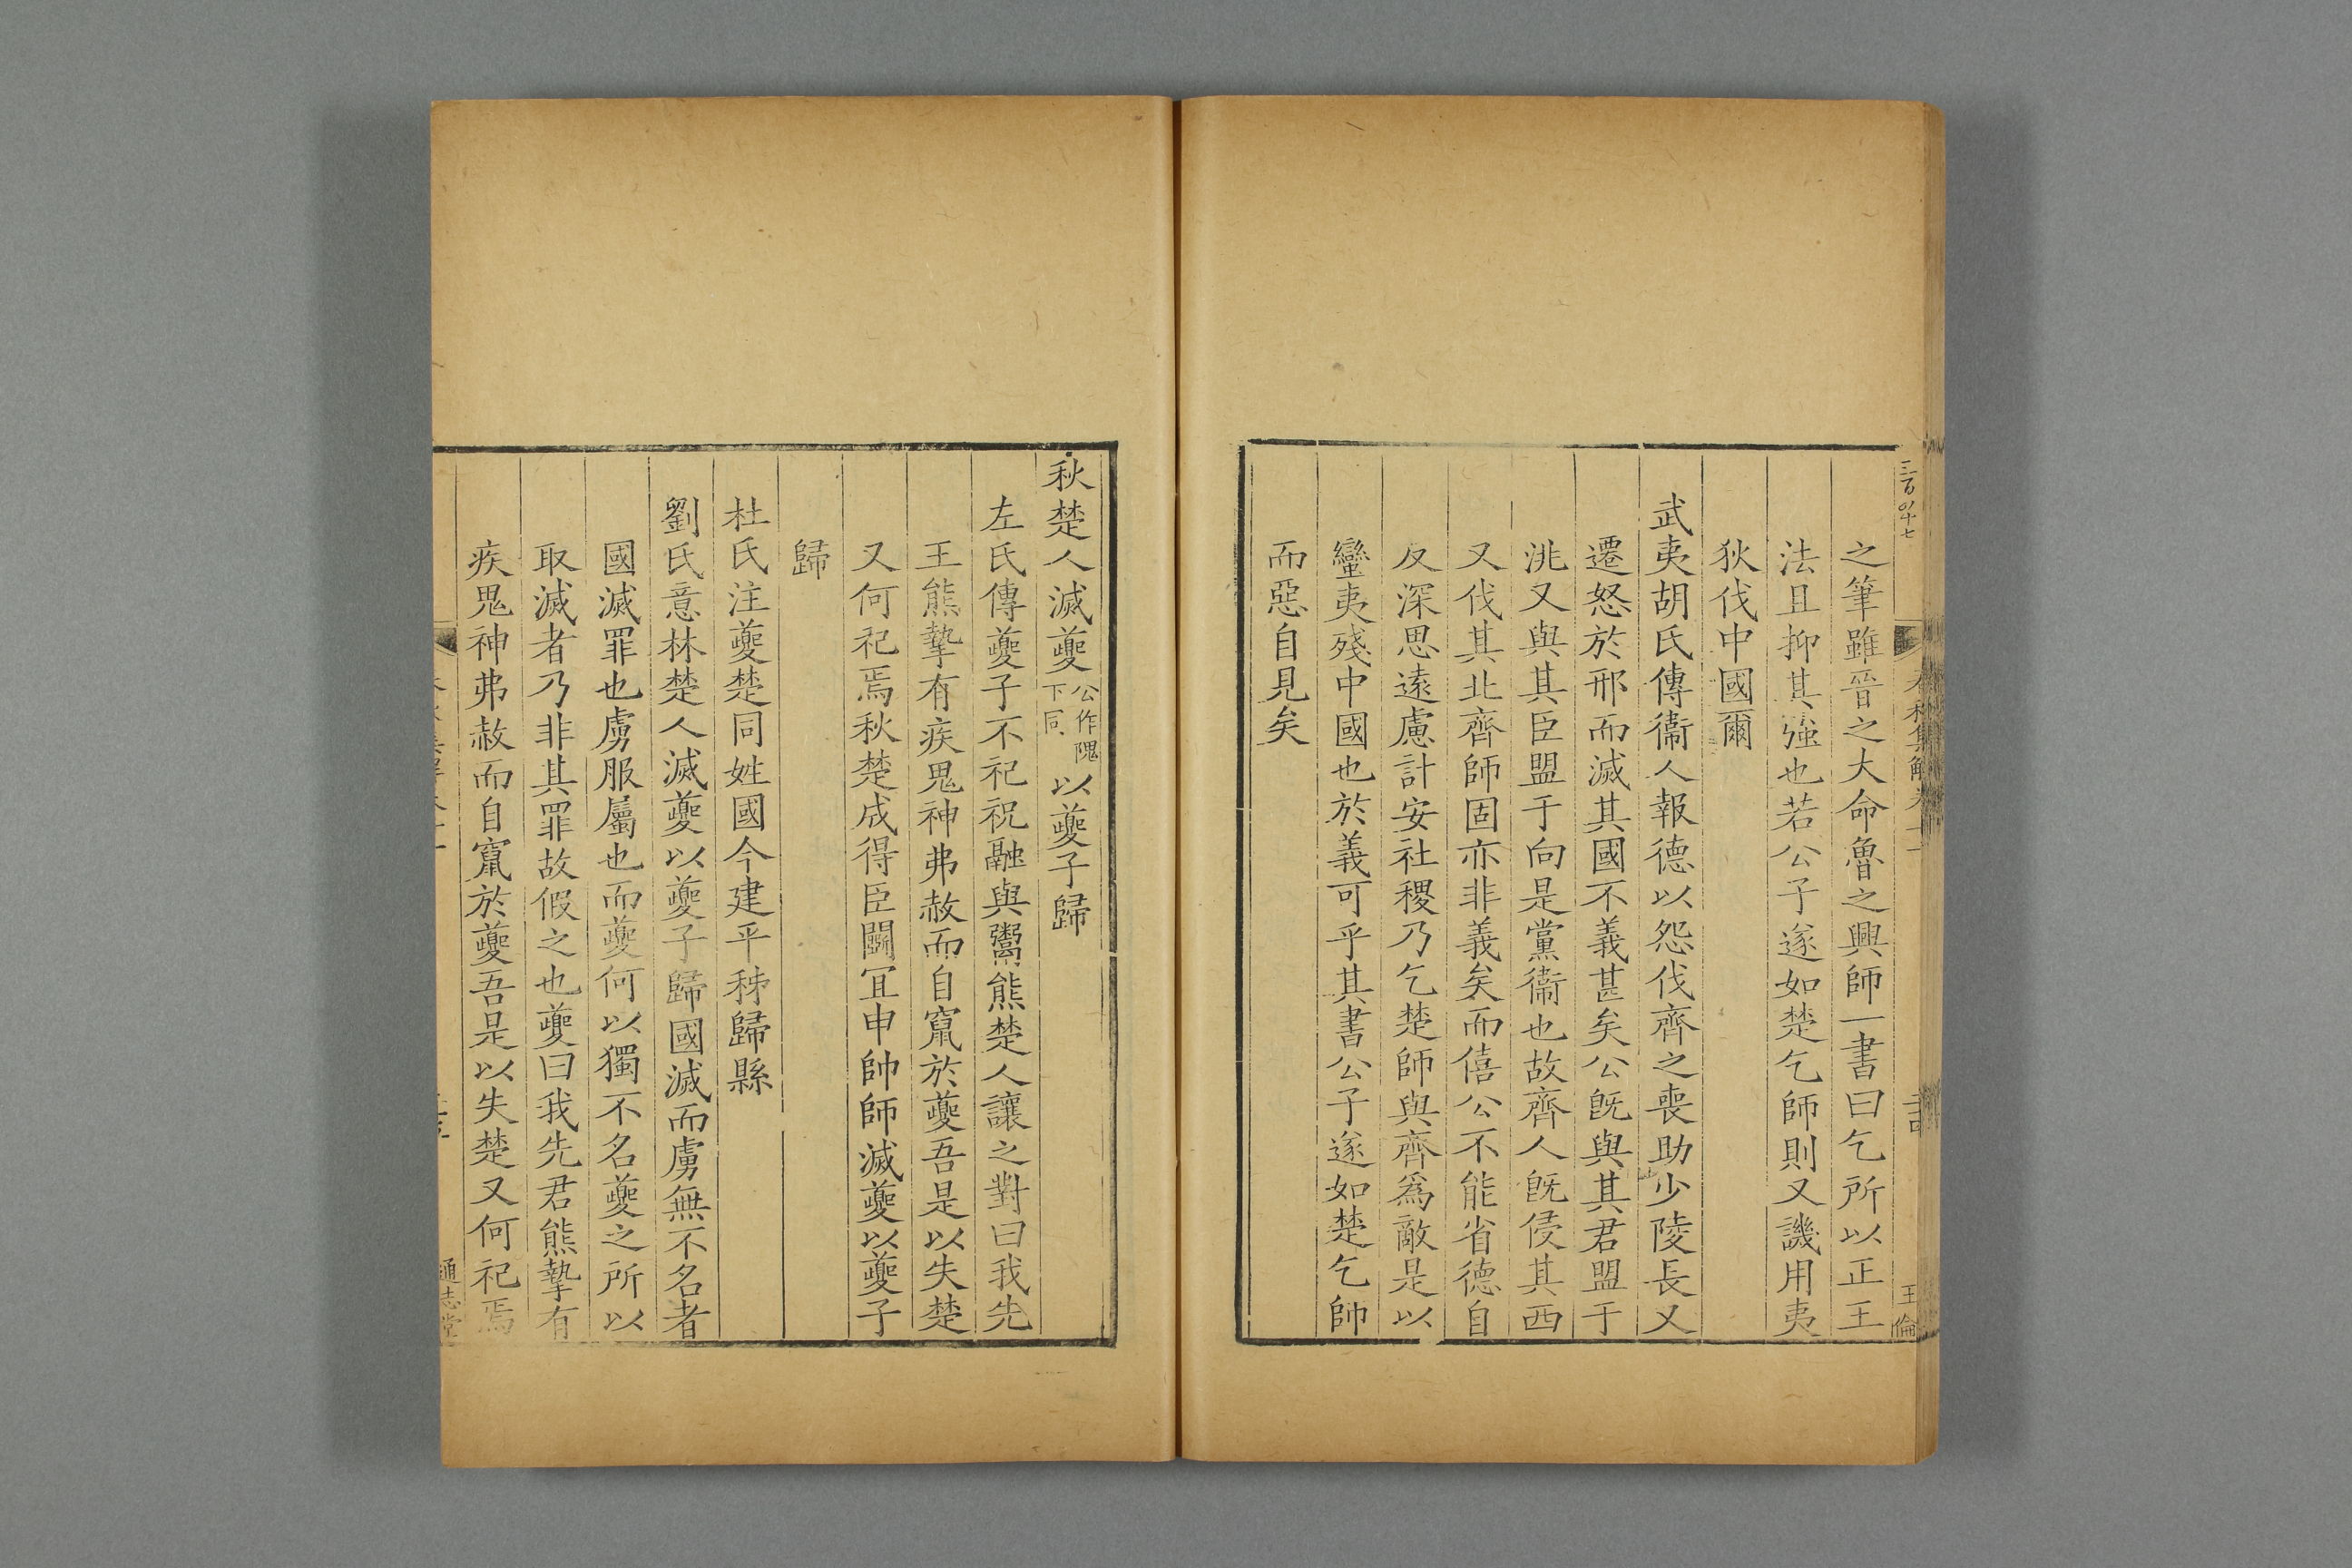 之筆雖晉之大命魯之興師一書曰乞所以正王
法且抑其強也若公子遂如楚乞師則又譏用夷
狄伐中國爾
武夷胡氏傳衞人報德以怨伐齊之喪助少陵長又
遷怒於邢而滅其國不義甚矣公旣與其君盟于
洮又與其臣盟于向是黨衞也故齊人旣侵其西
又伐其北齊師固亦非義矣而僖公不能省德自
反深思遠慮計安社稷乃乞楚師與齊爲敵是以
蠻夷殘中國也於義可乎其書公子遂如楚乞師
而惡自見矣
王倫
秋楚人滅夔公作隗下同以夔子歸
左氏傳夔子不祀祝融與鬻熊楚人讓之對曰我先
王熊摯有疾鬼神弗赦而自竄於夔吾是以失楚
又何祀焉秋楚成得臣鬭冝申帥師滅夔以夔子
歸
杜氏注夔楚同姓國今建平秭歸縣
劉氏意林楚人滅夔以夔子歸國滅而虜無不名者
國滅罪也虜服屬也而夔何以獨不名夔之所以
取滅者乃非其罪故假之也夔曰我先君熊摯有
疾鬼神弗赦而自竄於夔吾是以失楚又何祀焉
通志堂